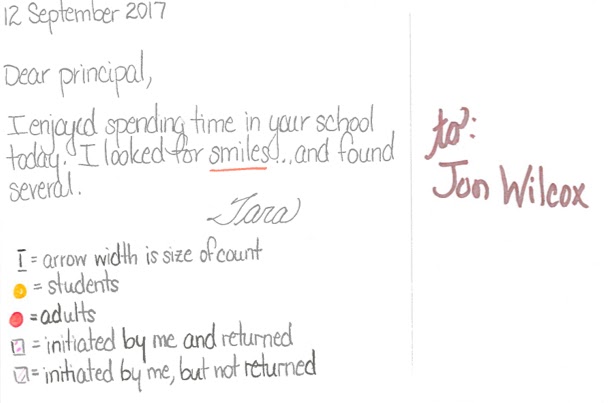 12 September 2017
Dear principal,
I enjoyed spending time in your school
today. I looked for smiles... and found
several.
Tara
I = arrow width is size of count
= students
= adults
= initiated by me and returned
= initiated by me, but not returned
to:
Jon Wilcox